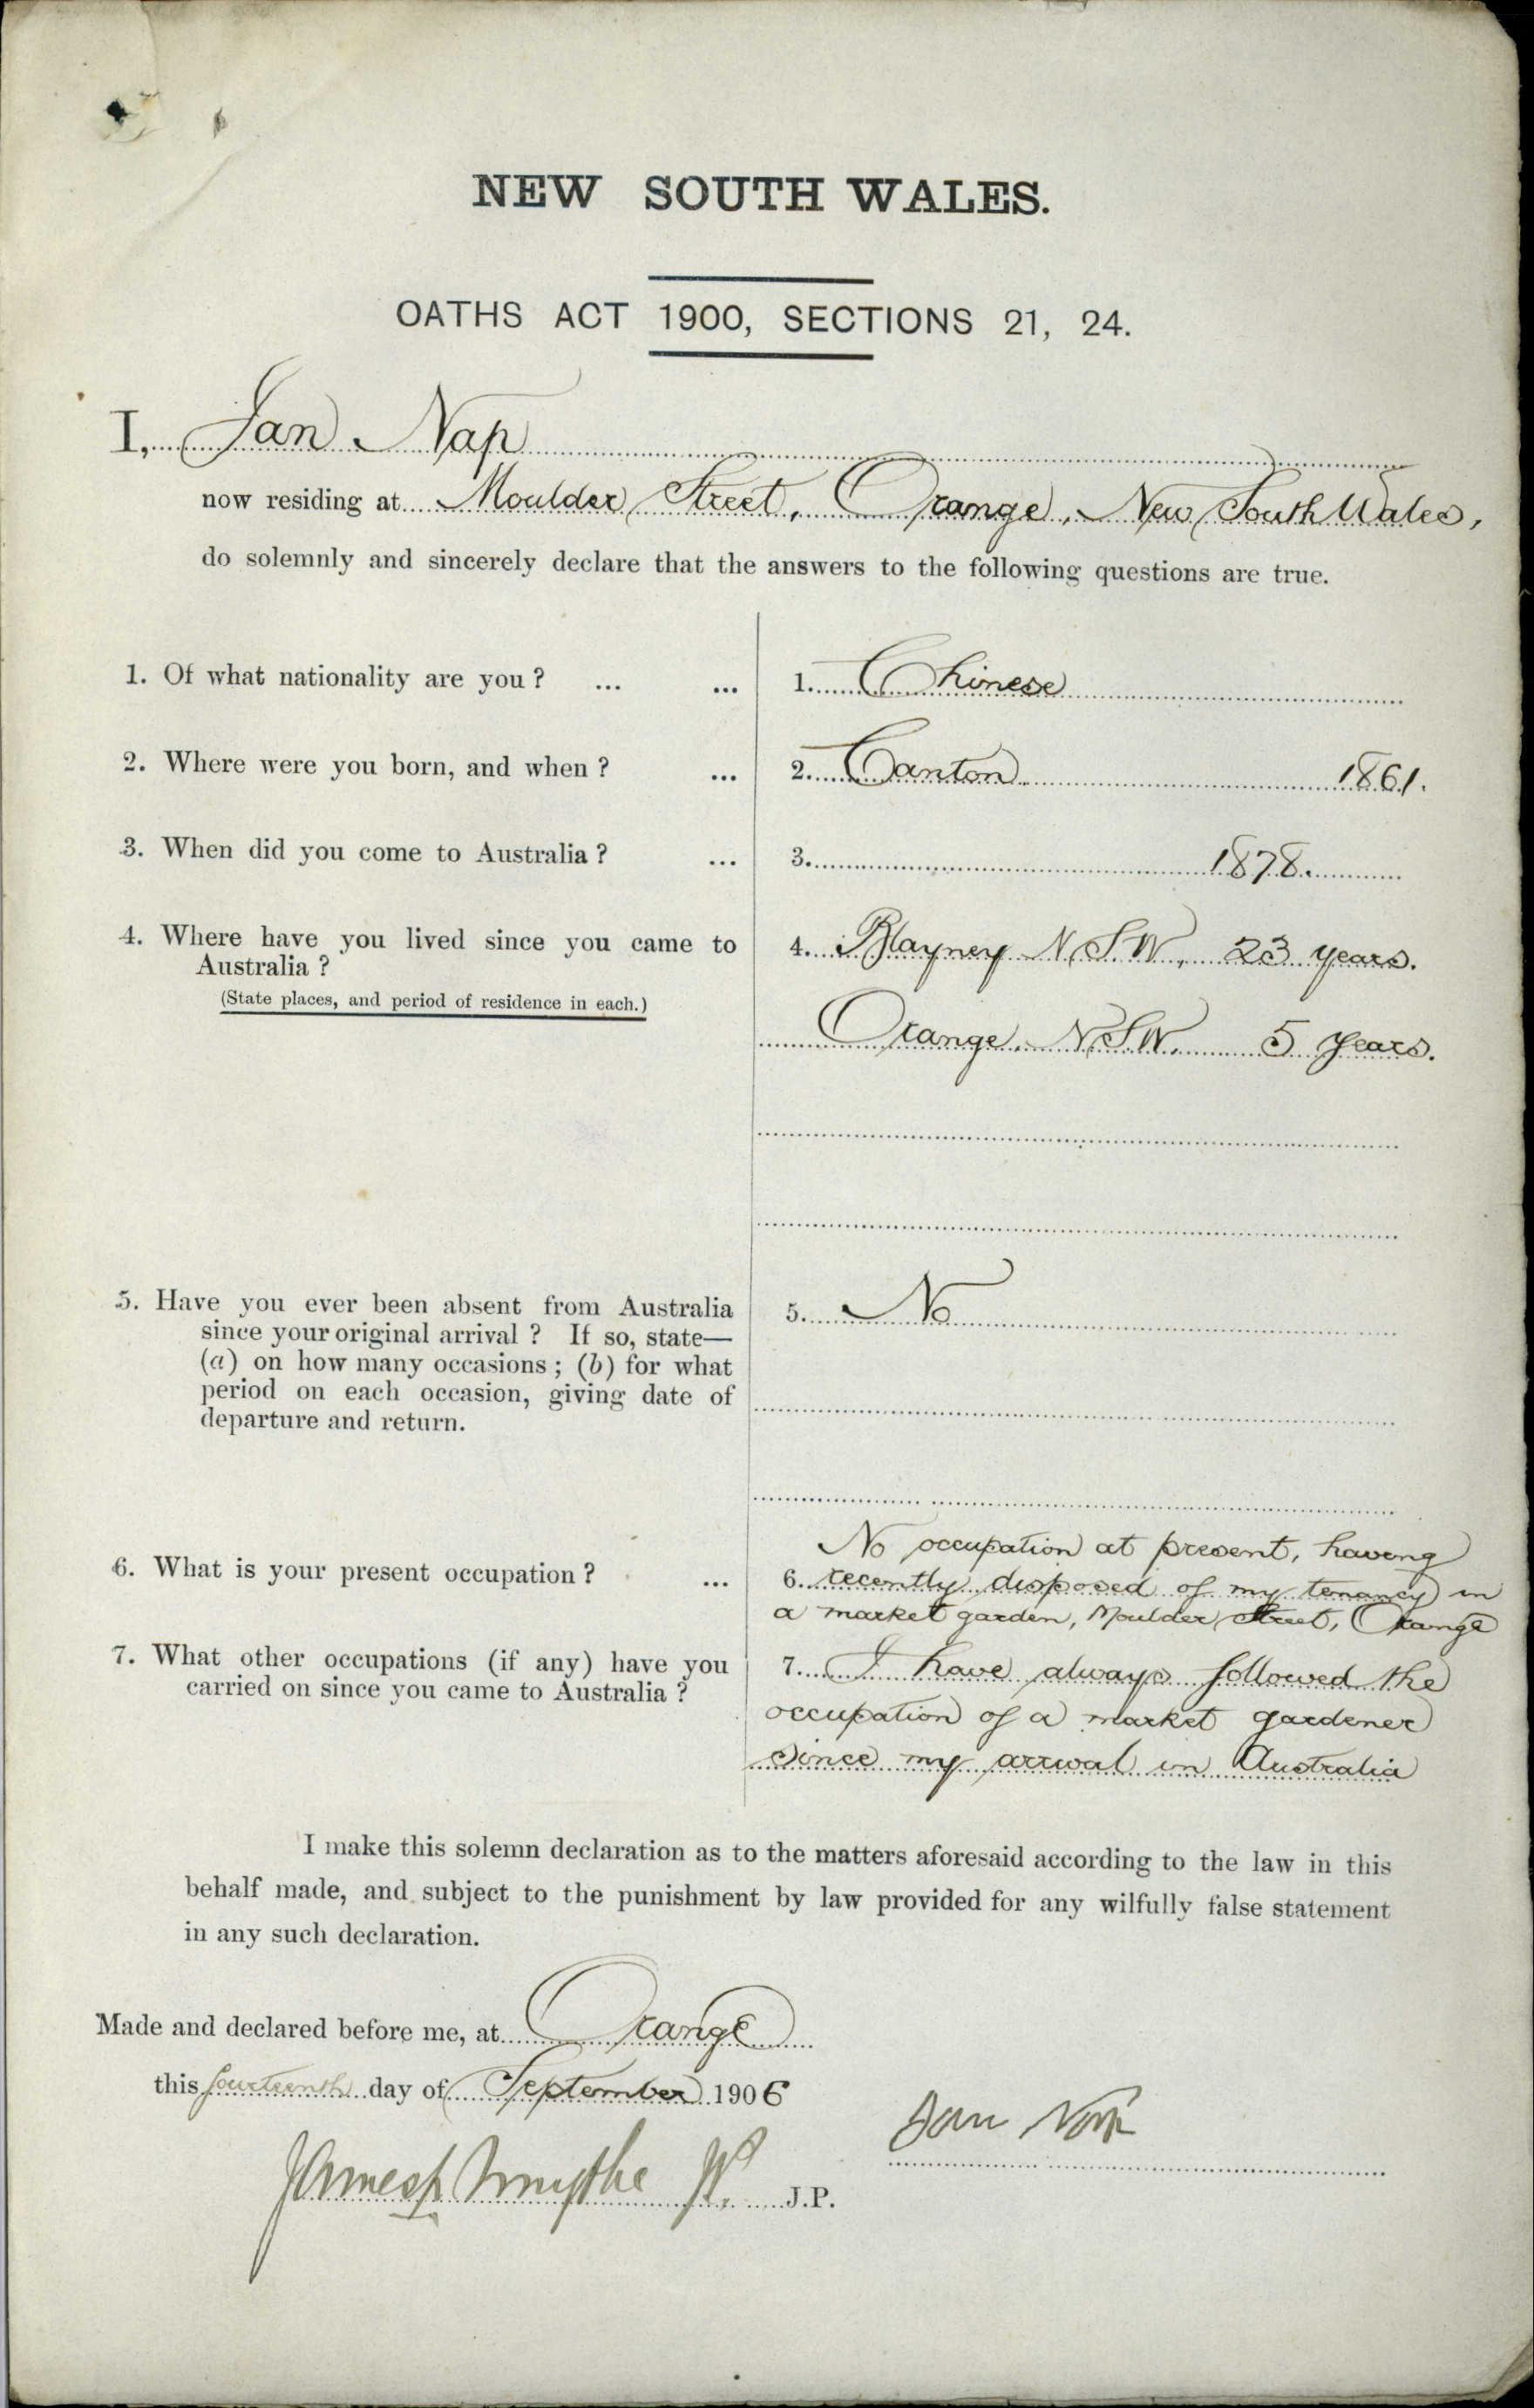 NEW SOUTH WALES.
OATHS ACT 1900, SECTIONS 21, 24.
I, Jan Nap
now residing at Moulder Street, Orange, New South Wales,
do solemnly and sincerely declare that the answers to the following questions are true.
1. Of what nationality are you? ... ... 1. Chinese
2. Where were you born, and when? ... 2. Canton 1861.
3. When did you come to Australia? ... 3. 1878.
4. Where have you lived since you came to 4. Blayney N.S.W. 23 years.
Australia?
(State places, and period of residence in each.)
Orange. N.S.W. 5 years.
5. Have you ever been absent from Australia 5. No
since your original arrival? If so, state—
(a) on how many occasions; (b) for what
period on each occasion, giving date of
departure and return.
No occupation at present, having
6. What is your present occupation? ... 6. recently disposed of my tenancy in
a market garden, Moulder Street, Orange
7. What other occupations (if any) have you 7. I have always followed the
carried on since you came to Australia?
occupation of a market gardener
since my arrival in Australia
I make this solemn declaration as to the matters aforesaid according to the law in this
behalf made, and subject to the punishment by law provided for any wilfully false statement
in any such declaration.
Made and declared before me, at Orange
this fourteenth day of September 1906
Jan Nap
James Smythe J.P.